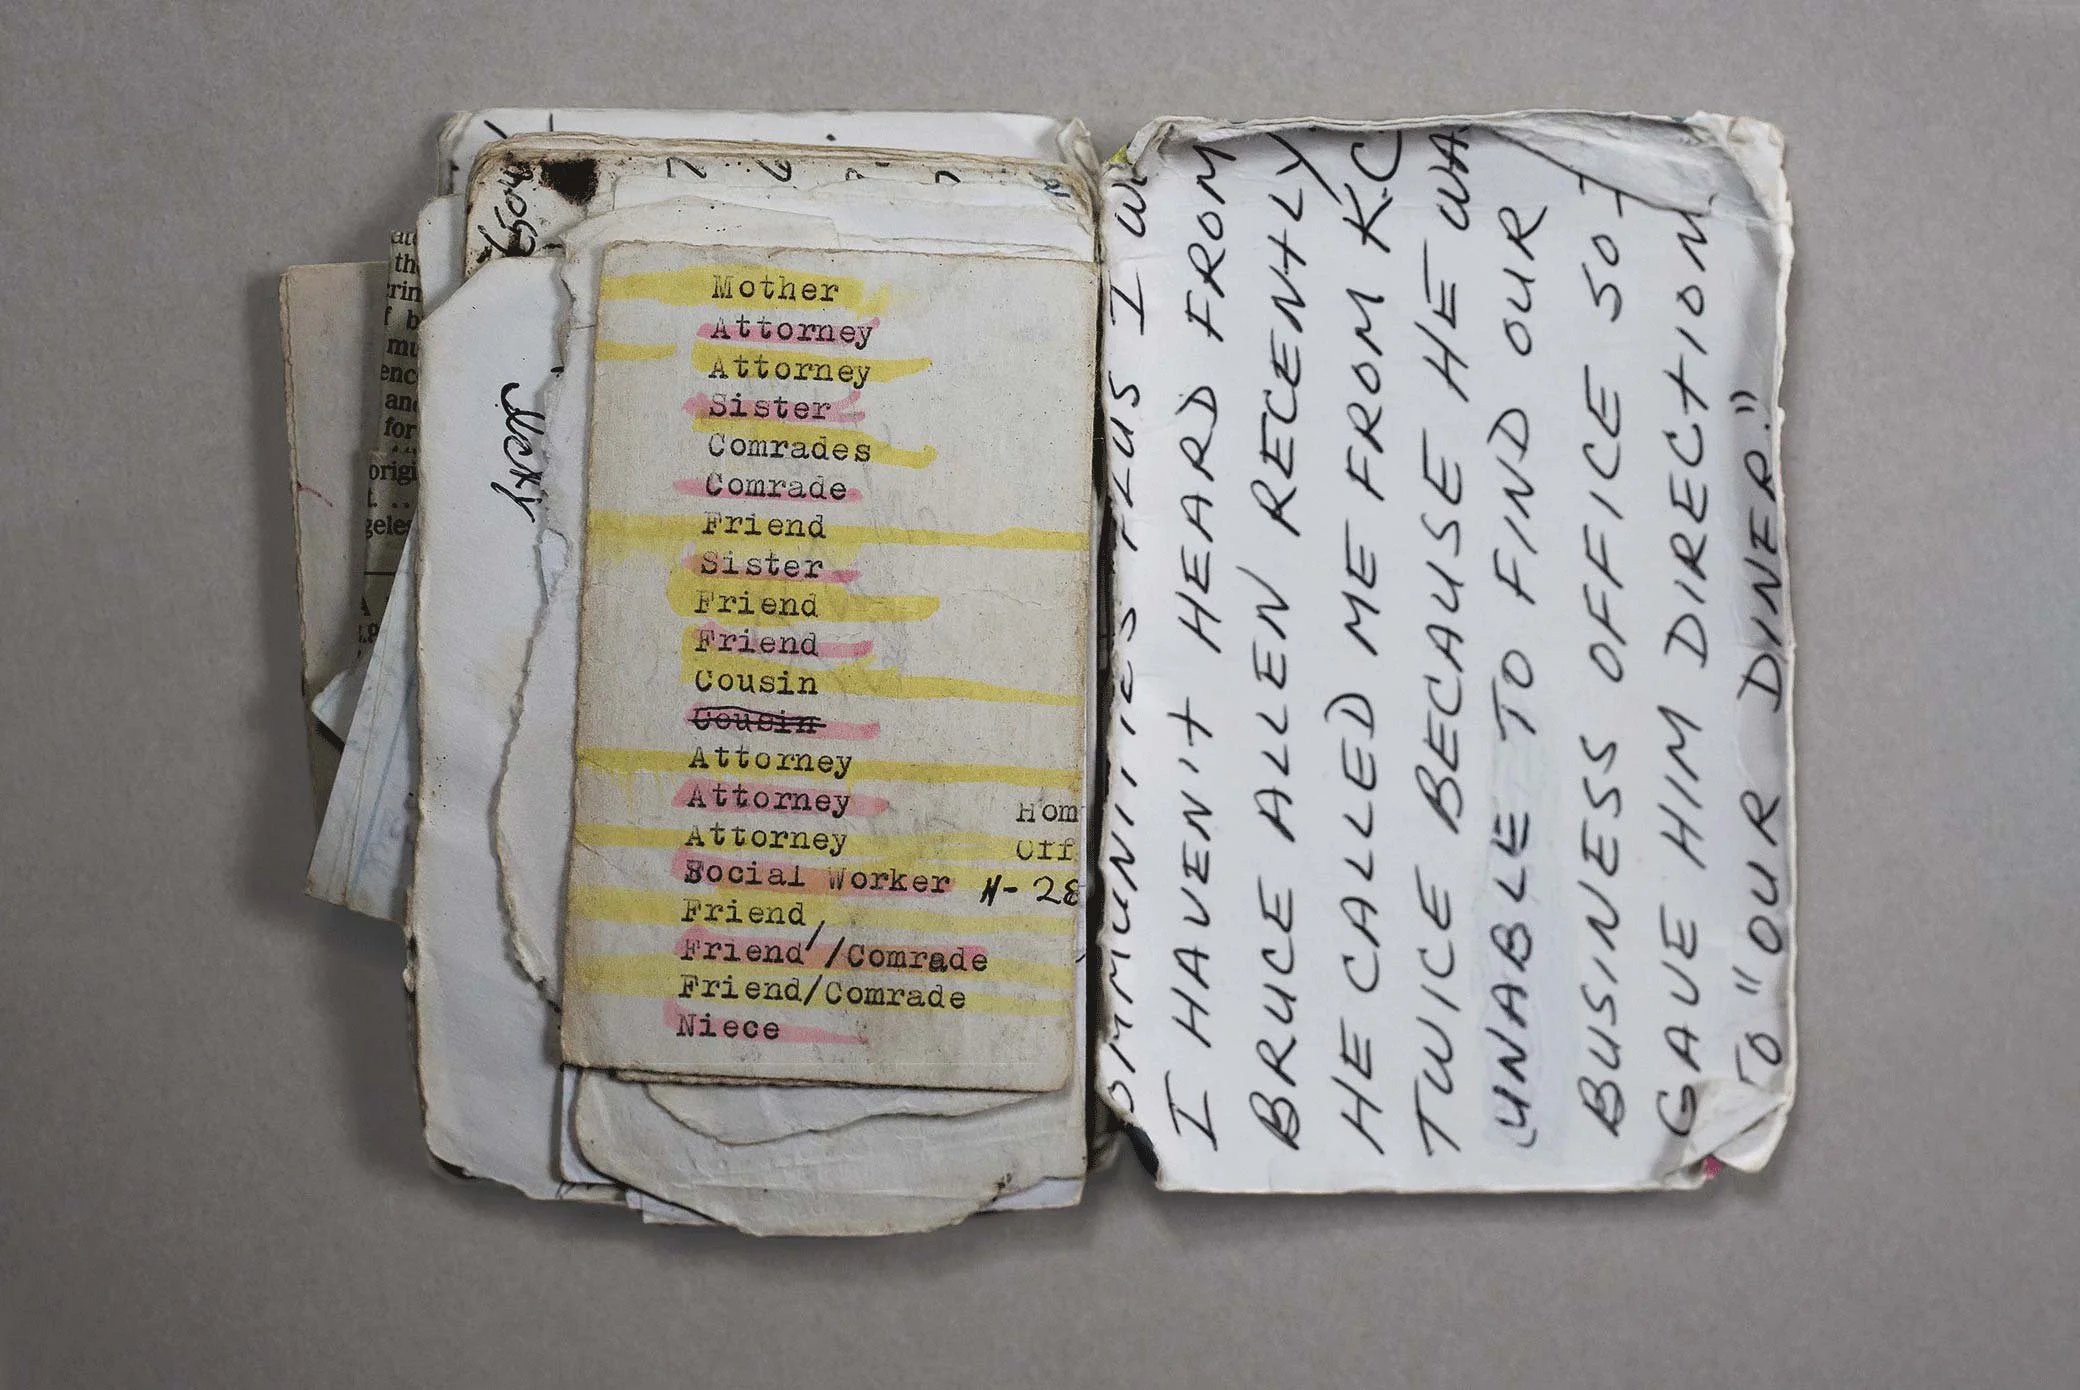 Mother
Attorney
Attorney
Sister
Comrades
Comrade
Friend
Sister
Friend
Friend
Cousin
Cousin
Attorney
Attorney Hom
Attorney Off
Social Worker H- 28
Friend
Friend//Comrade
Friend/Comrade
Niece
th
crin
f b
mu
enc
and
for
origi
t ..
geles
PLUS I
I HAVEN'T HEARD FROM
BRUCE ALLEN RECENTLY
HE CALLED ME FROM K.C
TWICE BECAUSE HE WA
UNABLE TO FIND OUR
BUSINESS OFFICE SO I
GAVE HIM DIRECTIONS
TO "OUR DINER."